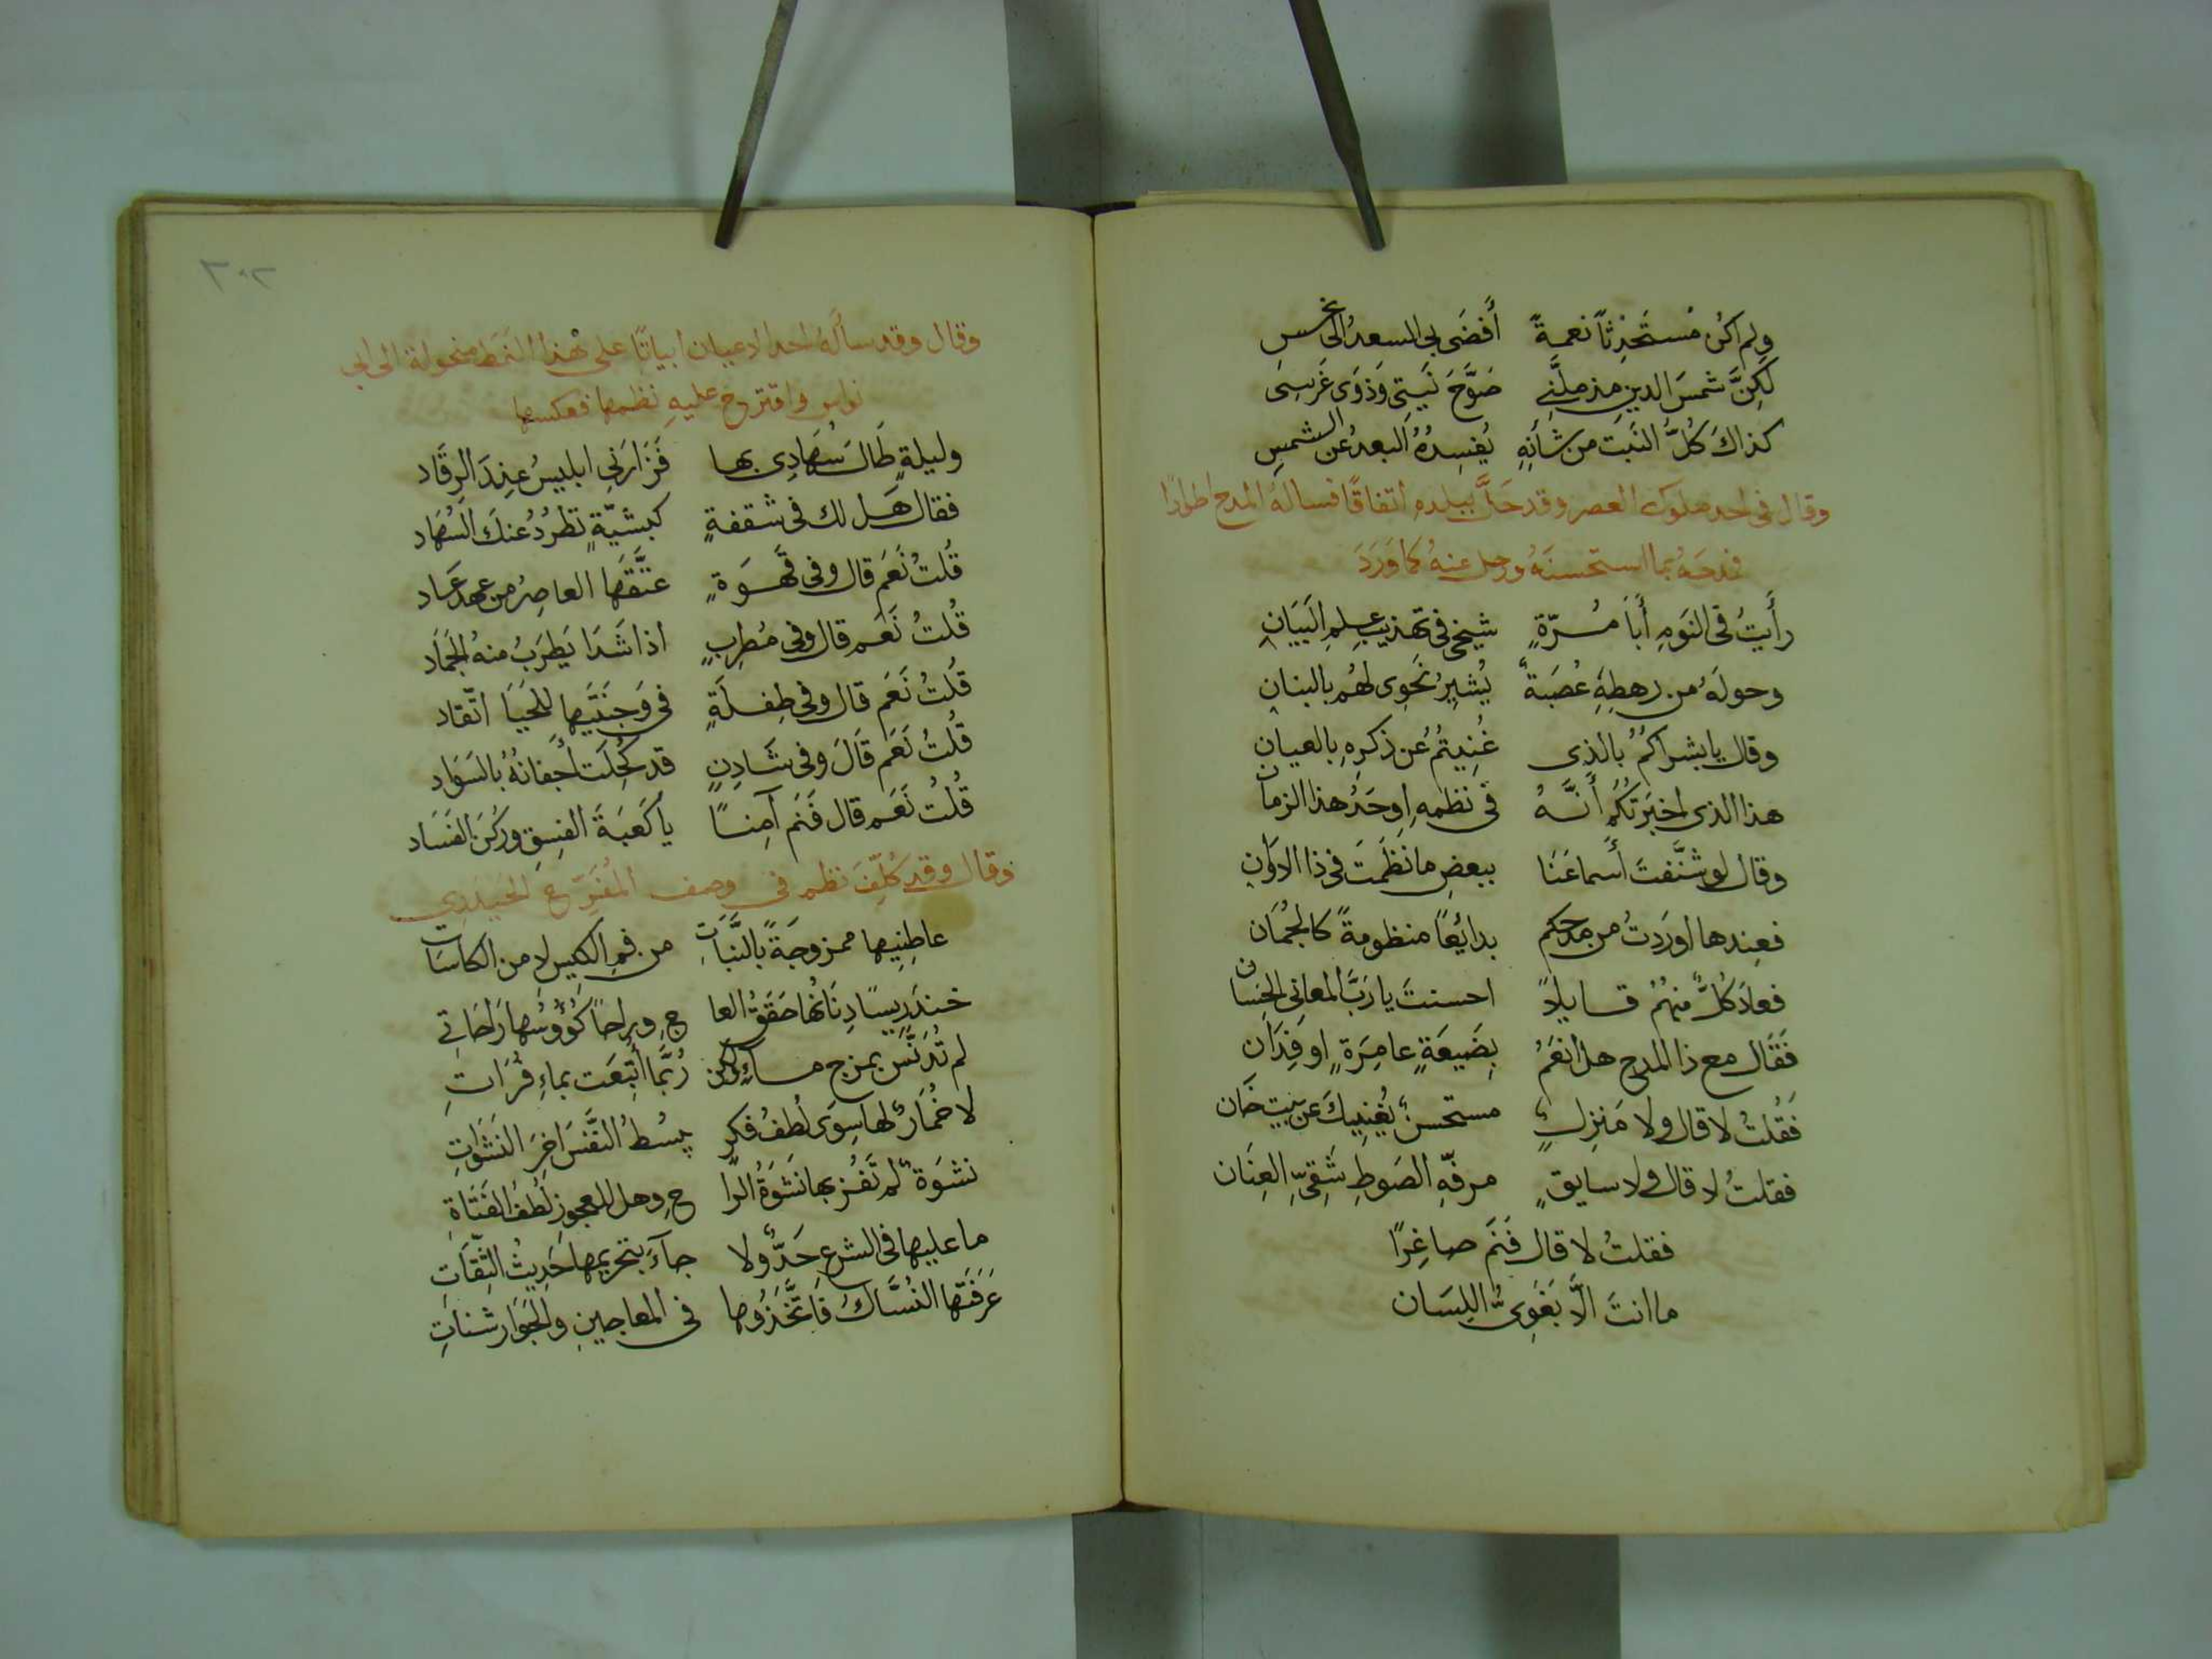 ولم اكن مُستَحْدِثاً نعمةً أَفضَى بى السعدُ الى نحس
لكِنَّ شمسَ الدين مذ ملَّنِى صَوَّحَ نَبتِى وَذوَى غَرسِى
كذاكَ كُلُّ النَبت من شأنِهِ يُفسِدُهُ البعدُ عن الشمسِ
وقال فى احد ملوك العصر وقد حَلَّ ببلده اتفاقًا فسالهُ المدح اطوارًا
فمدحَهُ بما استحسنَهُ ورحل عنهُ كما وَرَدَ
رأَيتُ فى النَومِ أَبا مُرّةٍ شيخى فى تهذيب عِلمِ البَيَانِ
وحولَهُ من رهطِهِ عُصَبةٌ يُشيرُ نَحوِى لهُم بالبنانِ
وقال يا بشراكمُ بالذى غُنِيتُمُ عن ذكرِهِ بالعيانِ
هذا الذى اخبَرتكُم أَنَّهُ فى نظمهِ اوحَدُ هذا الزمان
وقال لو شنَّفتَ أَسماعَنَا ببعضِ ما نظَمتَ فى ذا الاوانِ
فعِندها اورَدتُ من مدحكم بدائعًا منظومةً كالجُمَان
فعادَ كُلٌّ منهمُ قايلاً احسنتَ يا رَبَّ المعانى الحِسان
فَقَال مع ذا المدح هل انعَمُ بِضَيعَةٍ عامِرَةٍ او فِدَانِ
فَقُلتُ لا قال ولا مَنزِلٍ مستحسنٌ يُغنِيكَ عن بيت خَان
فقلتُ لا قال ولا سايقٍ مرفّهِ الصَوطِ شَقِىِّ العِنَان
فقلتُ لا قال فَنَم صاغِرًا
ما انتَ الَّا بَغَوِىُّ اللِسَان
٣٠٢
وقال وقد سأَلهُ احد الاعيان ابياتًا على هذا النمط منحولة الى ابى
نواس واقترح عليهِ نظمها فعكسها
وليلةٍ طَال سُهَادِى بها فَزَارَنِى ابليسُ عِندَ الرقَاد
فقال هَل لك فى شقفةٍ كبشيّةٍ تطرُدُ عنكَ السُهَاد
قُلتُ نَعَم قال وفى قَهوَةٍ عتَّقَها العاصِرُ من عهد عَاد
قُلتُ نَعَم قال وفى مُطرِبٍ اذا شَدَا يَطرَبُ منهُ الجَمَاد
قُلتُ نَعَم قال وفى طِفلَةٍ فى وَجنَتَيها للحَيَا اتّقاد
قُلتُ نَعَم قَالَ وفى شَادِنٍ قد كُحِلَت أَجفانُهُ بالسَوَاد
قُلتُ نَعَم قال فَنَم آمِنًا يا كَعبَةَ الفِسقِ ورُكنَ الفَسَاد
وقال وقد كُلِّفَ نظم فى وصف المُفَرِّح الحيدرى
عاطِنِيها ممزوجَةً بالنَّبَاتِ من فمِ الكيسِ لا من الكاسات
خندريسًا دِنَانُها حَقَقُ العا جِ وراحاً كُؤُوسُها رَاحَاتِى
لم تُدَنَّس بمزجِ ماءٍ ولكن رُبَّما أُتبِعَت بماءِ فُرَاتِ
لا خُمَارٌ لها سِوَى لُطفُ فكرٍ يبسُطُ النَّفسَ اخِرَ النَشَوَاتِ
نشوَةٌ لم تَفُز بها نَشَوَةُ الرَّا حِ وهل للعجوزِ لُطفُ الفَتَاةِ
ما عليها فى الشرعِ حَدٌّ ولا جآءَ بتحريمها حَدِيثُ الثِّقَاتِ
عَرَفَتها النُسَّاكُ فاتَّخَذُوها فى المعاجينِ والجَوَارشناتِ